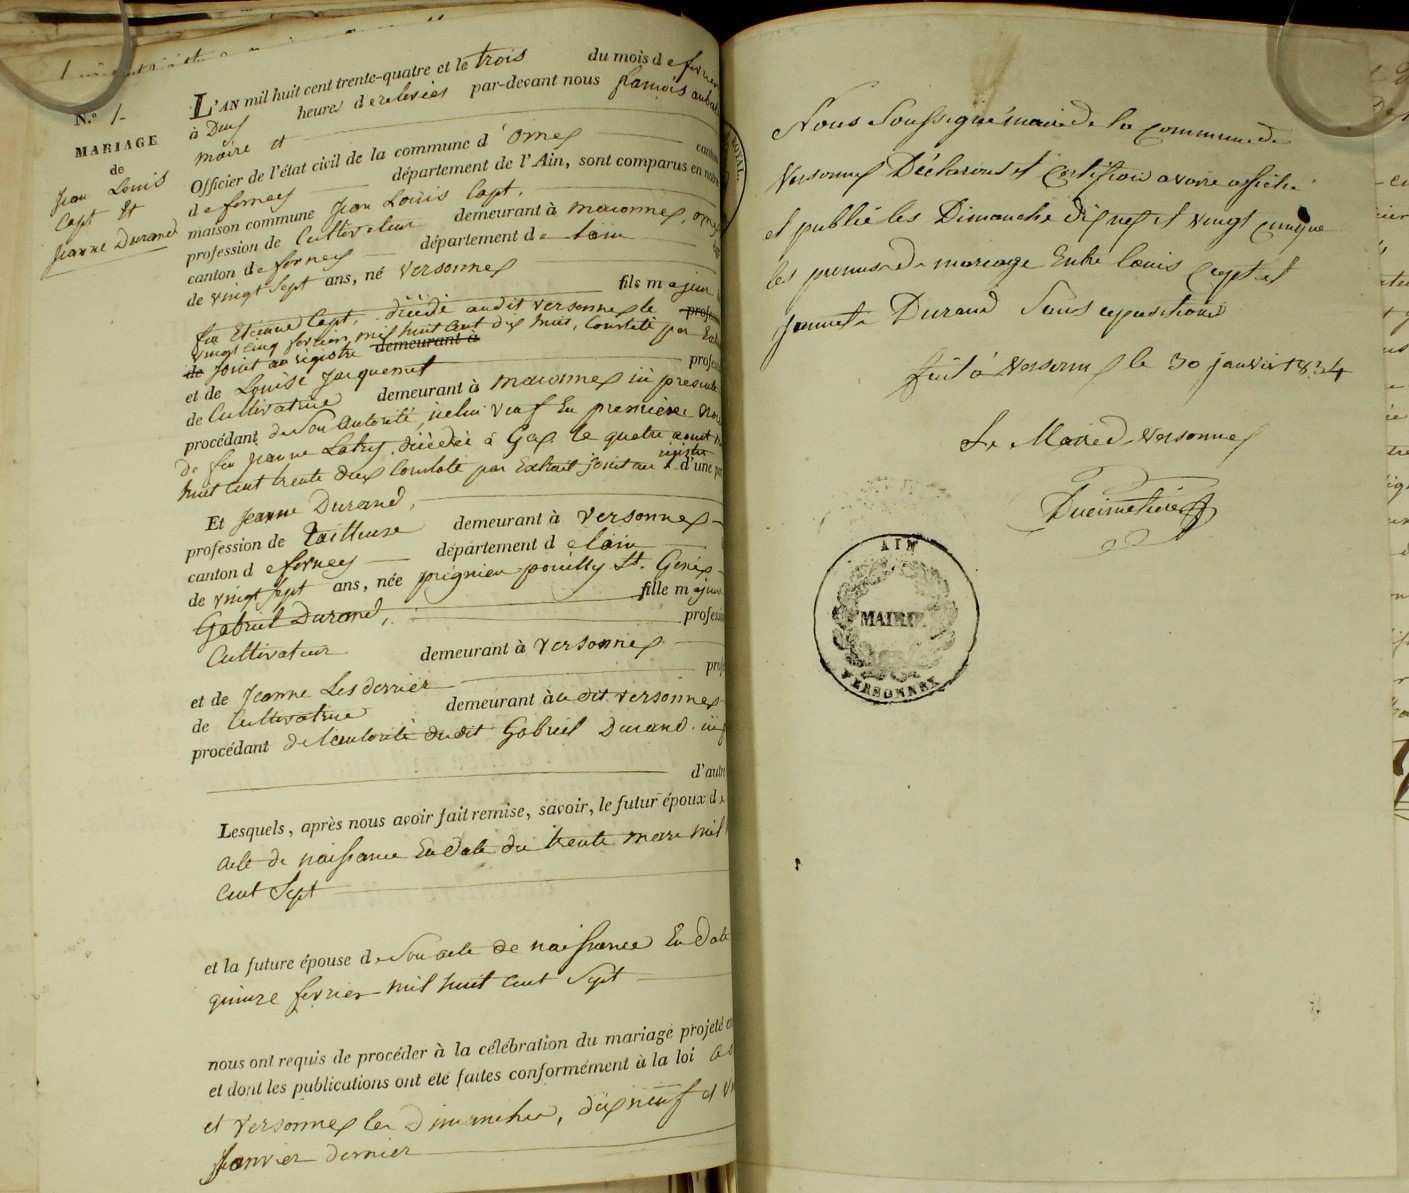 N.º 1-
MARIAGE
de
Jean Louis
Capt et
Jeanne Durand
L'AN mil huit cent trente-quatre et le trois du mois de fevrier
à Deux heures de relevées par-devant nous françois
maire et
Officier de l'état civil de la commune d'Ornex canton
de ferney département de l'Ain, sont comparus en notre
maison commune Jean Louis Capt,
profession de Cultivateur demeurant à maconnex, ornex
canton de ferney département de lain
de vingt sept ans, né versonnex
fils majeur
feu Etienne Capt, décédé audit versonnex le profes
vingt cinq fevrier mil huit cent dix huit, Constaté par Ext
de joint au registre demeurant à
et de Louise Jacquemet profes
de Cultivatrice demeurant à maconnex ici presente
procédant de son autorité, icelui veuf En première
de feu Jeanne Latry, décédée à Gex le quatre aout
huit cent trente deux Constaté par Extrait joint au registre d'une part
Et Jeanne Durand,
profession de tailleuse demeurant à versonnex
canton de ferney département de lain
de vingt sept ans, née prégnien pouilly St. Genix
fille majeure
Gabriel Durand, profession
Cultivateur demeurant à versonnex
et de Jeanne Lesderrier prof
de Cultivatrice demeurant àu dit versonnex
procédant de lautorité dudit Gabriel Durand
d'autre
Lesquels, après nous avoir fait remise, savoir, le futur époux de
acte de naissance En date du trente mars mil
cent Sept
et la future épouse de Son acte de naissance En date
quinze fevrier mil huit cent Sept
nous ont requis de procéder à la célébration du mariage projeté
et dont les publications ont été faites conformément à la loi
et versonnex les Dimanches, dixneuf et
Janvier dernier
ROYAL.
Nous Soussigné maire de la commune de
Versonnex Déclarons et Certifions avoire affiché
et publié les Dimanche dix neuf et vingt cinque
les promesse de mariage Entre Louis Capt et
Jannete Durand Sans opositions
fait à Versonnex le 30 janvier 1834
Le Maire de Versonnex
Ducimetière
AIN
MAIRIE
VERSONNEX